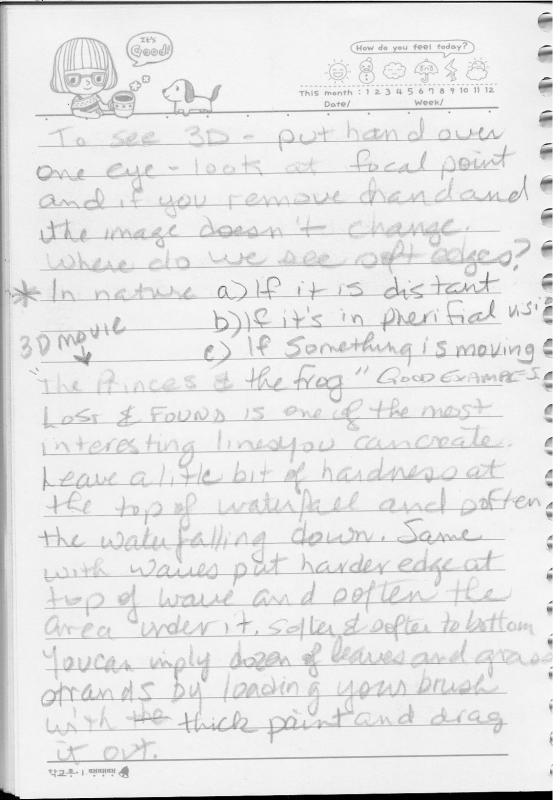 It's Good!
How do you feel today?
This month : 1 2 3 4 5 6 7 8 9 10 11 12
Date/ Week/
To see 3D - put hand over
one eye - look at focal point
and if you remove hand and
the image doesn't change.
Where do we see soft edges?
* In nature a) If it is distant
b) If it's in pherifial visi
3D movie
c) If Something is moving
"The Princes & the frog" GOOD EXAMPLES
LOST & FOUND is one of the most
interesting lines you can create.
Leave a litle bit of hardness at
the top of waterfall and soften
the water falling down. Same
with waves put harder edge at
top of wave and soften the
area under it. Softer & softer to bottom
You can imply dozen of leaves and grass
strands by loading your brush
with the thick paint and drag
it out.